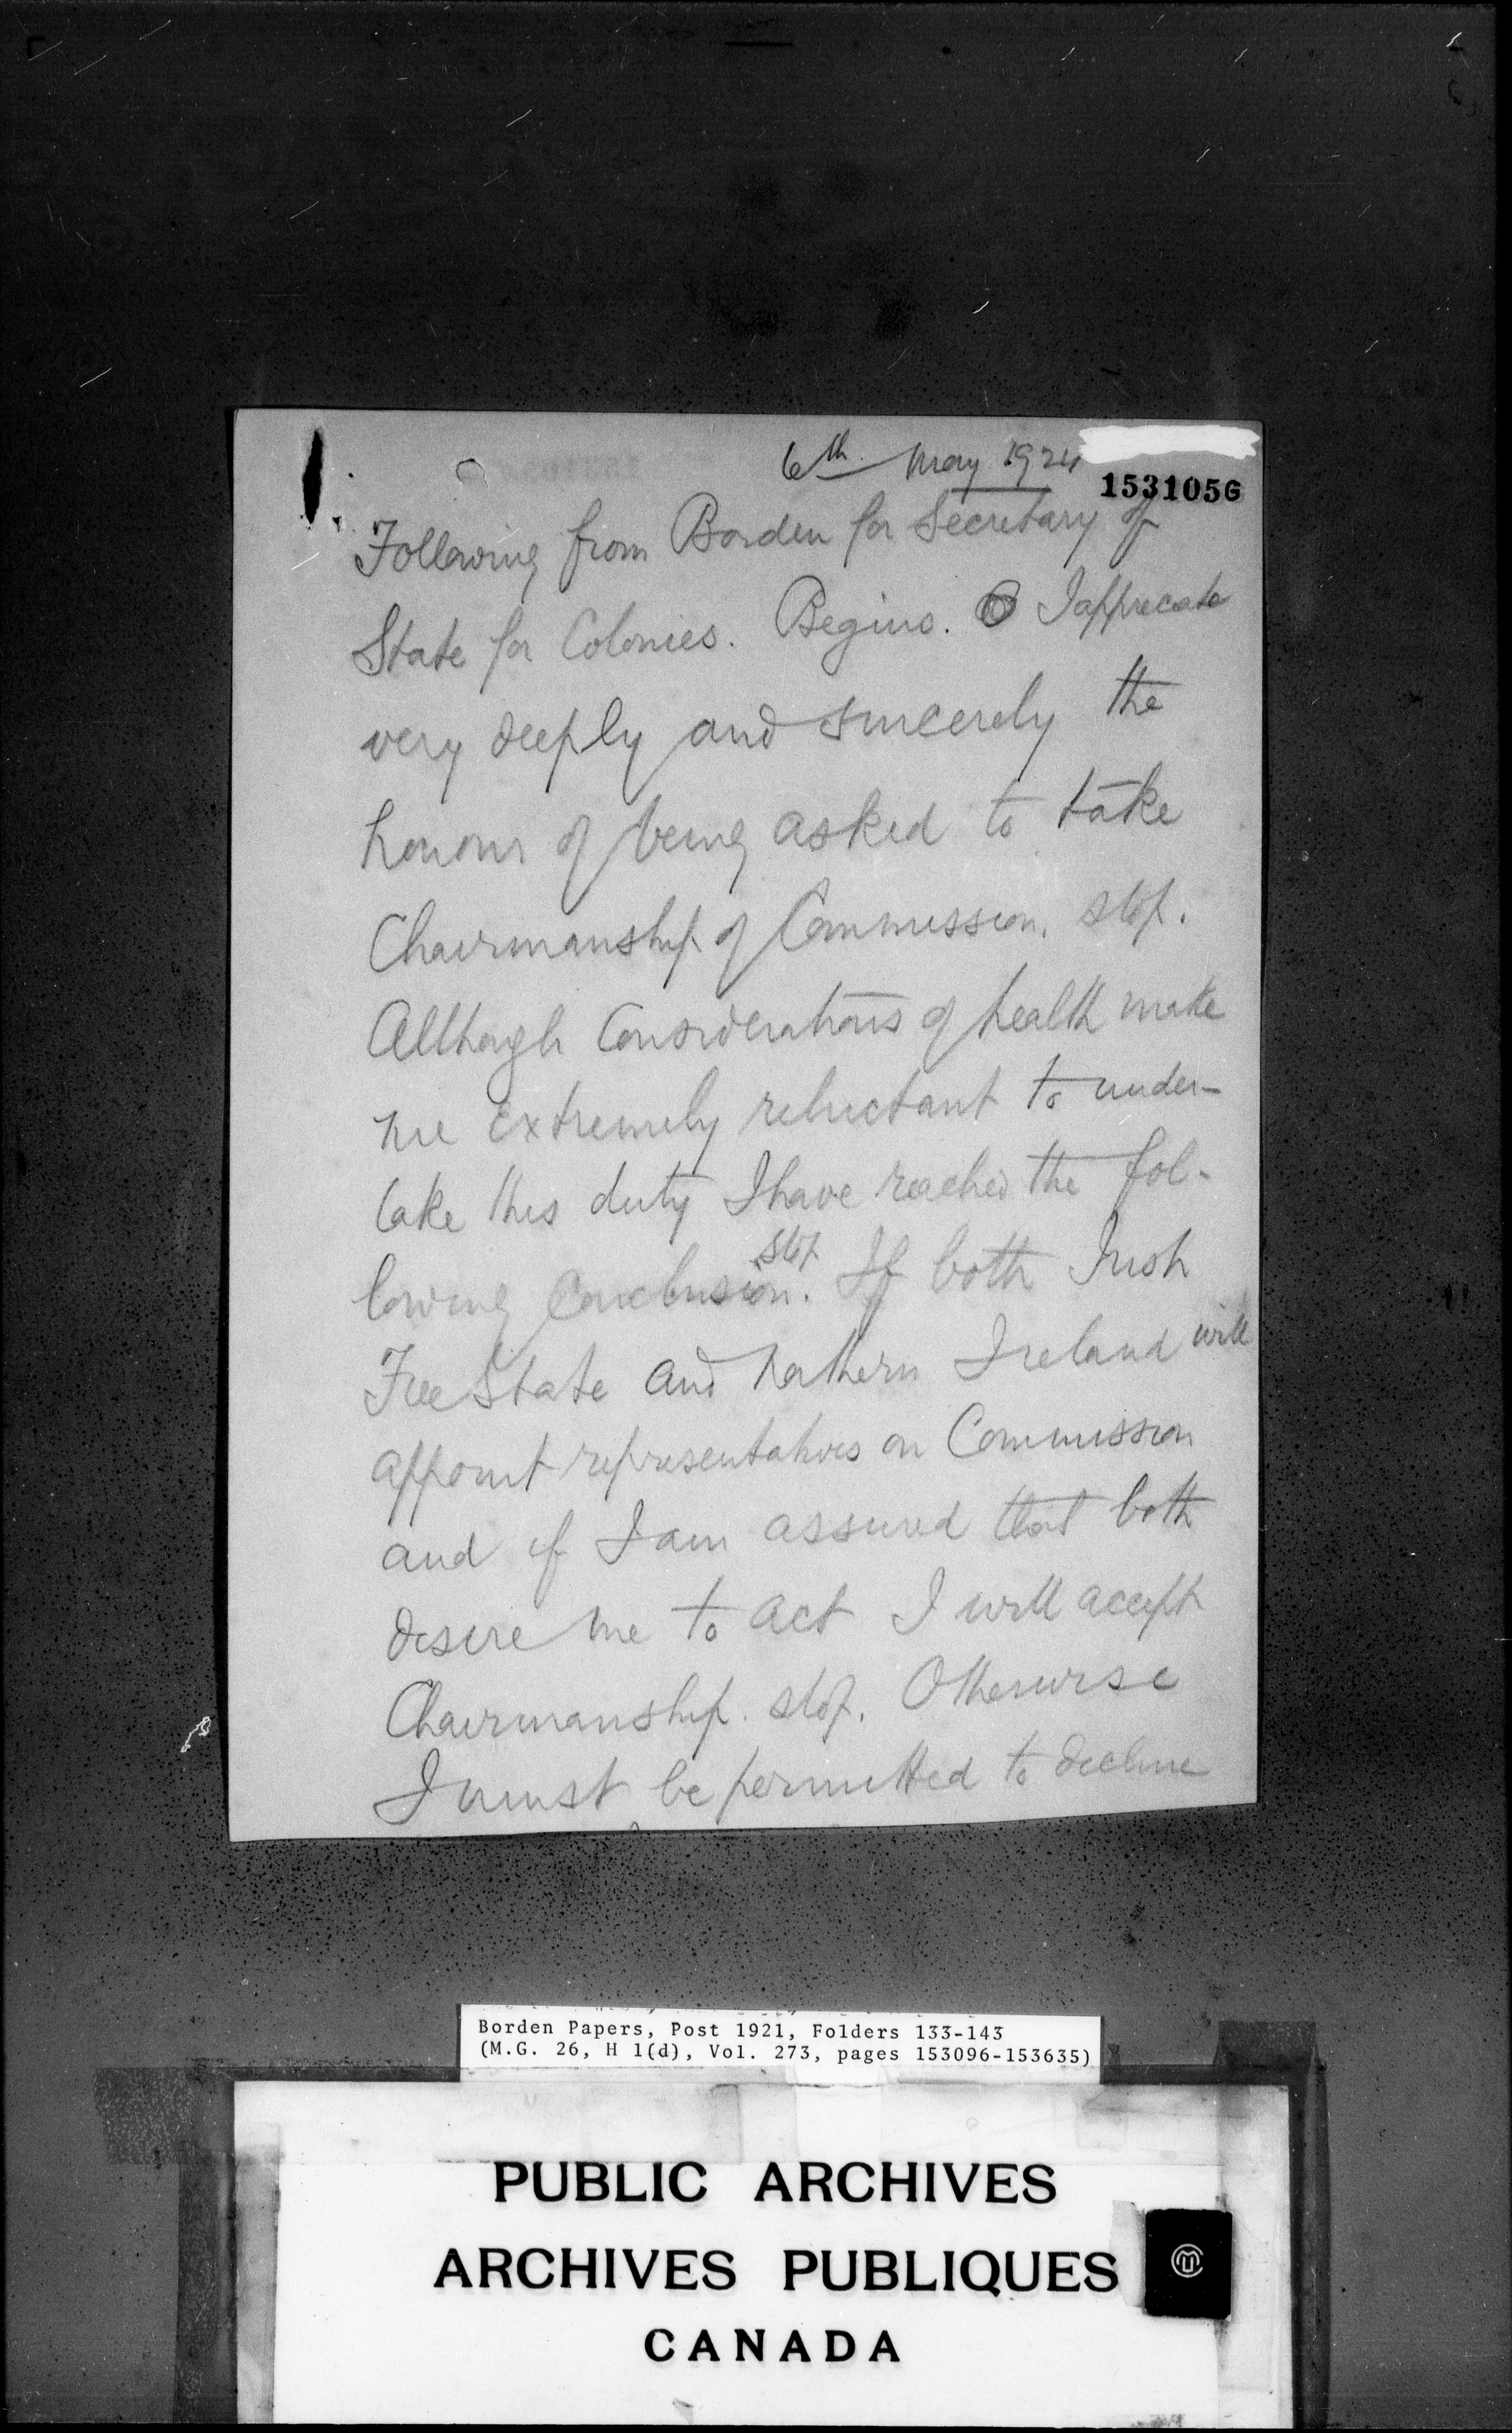 6th May 1924
153105G
Following from Borden for Secretary of
State for Colonies. Begins. I apprecate
very deeply and sincerely the
honour of being asked to take
Chairmanship of Commission. stop.
Although Considerations of health make
me extremely reluctant to under-
take this duty I have reached the fol-
lowing Conclusion. stop If both Irish
Free State and Northern Ireland will
appoint representatives on Commission
and if I am assured that both
desire me to act I will accept
Chairmanship. stop. Otherwise
I must be permitted to decline
Borden Papers, Post 1921, Folders 133-143
(M.G. 26, H 1(d), Vol. 273, pages 153096-153635)
PUBLIC ARCHIVES
ARCHIVES PUBLIQUES
CANADA